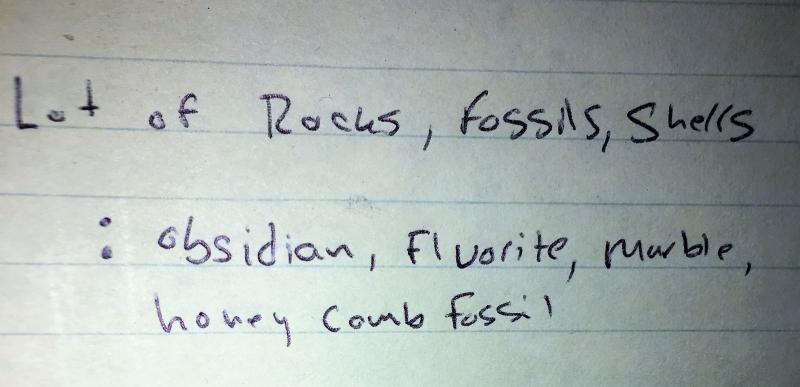 Lot of Rocks, fossils, Shells
: obsidian, fluorite, marble,
honey comb fossil